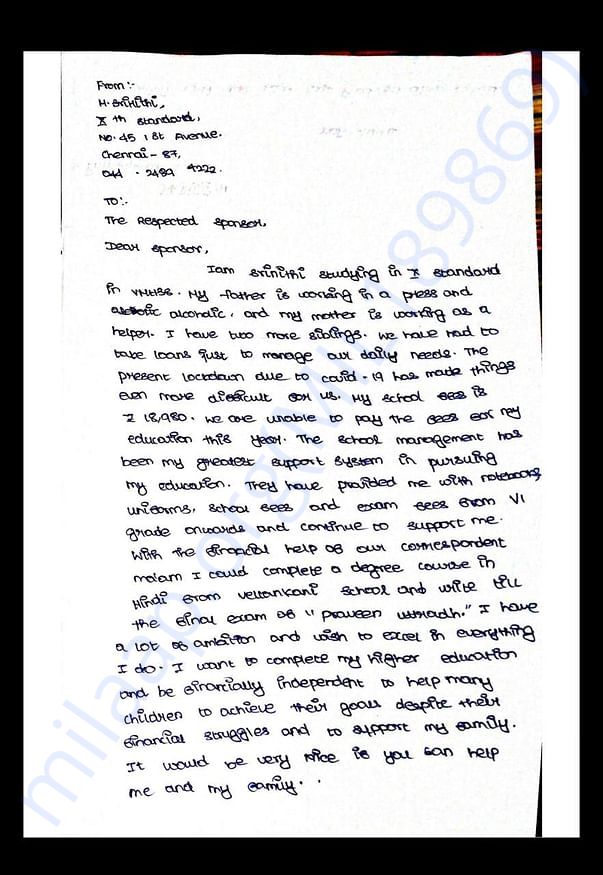 From :-
H. Srinithi,
X th standard,
No. 45 1 st Avenue.
Chennai - 87,
044 - 2489 4222.
To :-
The Respected Sponsor,
Dear sponsor,
Iam srinithi studying in X standard
in VMHSS. My father is working in a press and
alcoholic, and my mother is working as a
helper. I have two more siblings. We have had to
take loans just to manage our daily needs. The
present lockdown due to covid - 19 has made things
even more difficult for us. My school fees is
₹ 18,980. We are unable to pay the fees for my
education this year. The school management has
been my greatest support system in pursuing
my education. They have provided me with notebooks,
uniforms, school fees and exam fees from VI
grade onwards and continue to support me.
With the financial help of our correspondent
mam I could complete a degree course in
Hindi from vellankani school and write till
the final exam of "praveen uttradh." I have
a lot of ambition and wish to excel in everything
I do. I want to complete my higher education
and be financially independent to help many
children to achieve their goals despite their
financial struggles and to support my family.
It would be very nice if you can help
me and my family.
milaap.org(MIL-1898869)